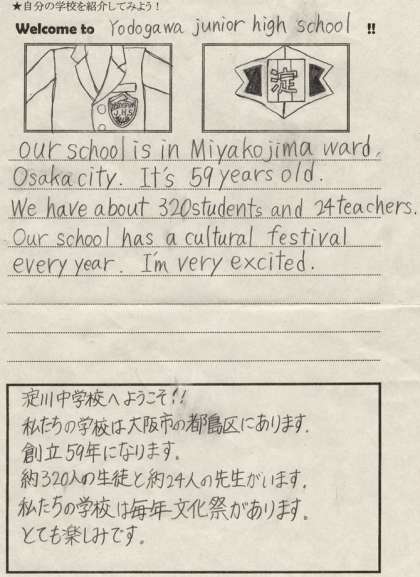 ★自分の学校を紹介してみよう！
Welcome to Yodogawa junior high school !!
J.H.S
淀
Our school is in Miyakojima ward,
Osaka city. It's 59 years old.
We have about 320 students and 24 teachers.
Our school has a cultural festival
every year. I'm very excited.
淀川中学校へようこそ!!
私たちの学校は大阪市の都島区にあります。
創立59年になります。
約320人の生徒と約24人の先生がいます。
私たちの学校は毎年文化祭があります。
とても楽しみです。